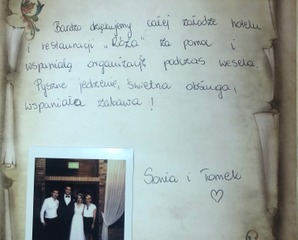 Bardzo dziękujemy całej załodze hotelu
i restauracji "Róża" za pomoc i
wspaniałą organizację podczas wesela.
Pyszne jedzenie, świetna obsługa,
wspaniała zabawa!
Sonia i Tomek